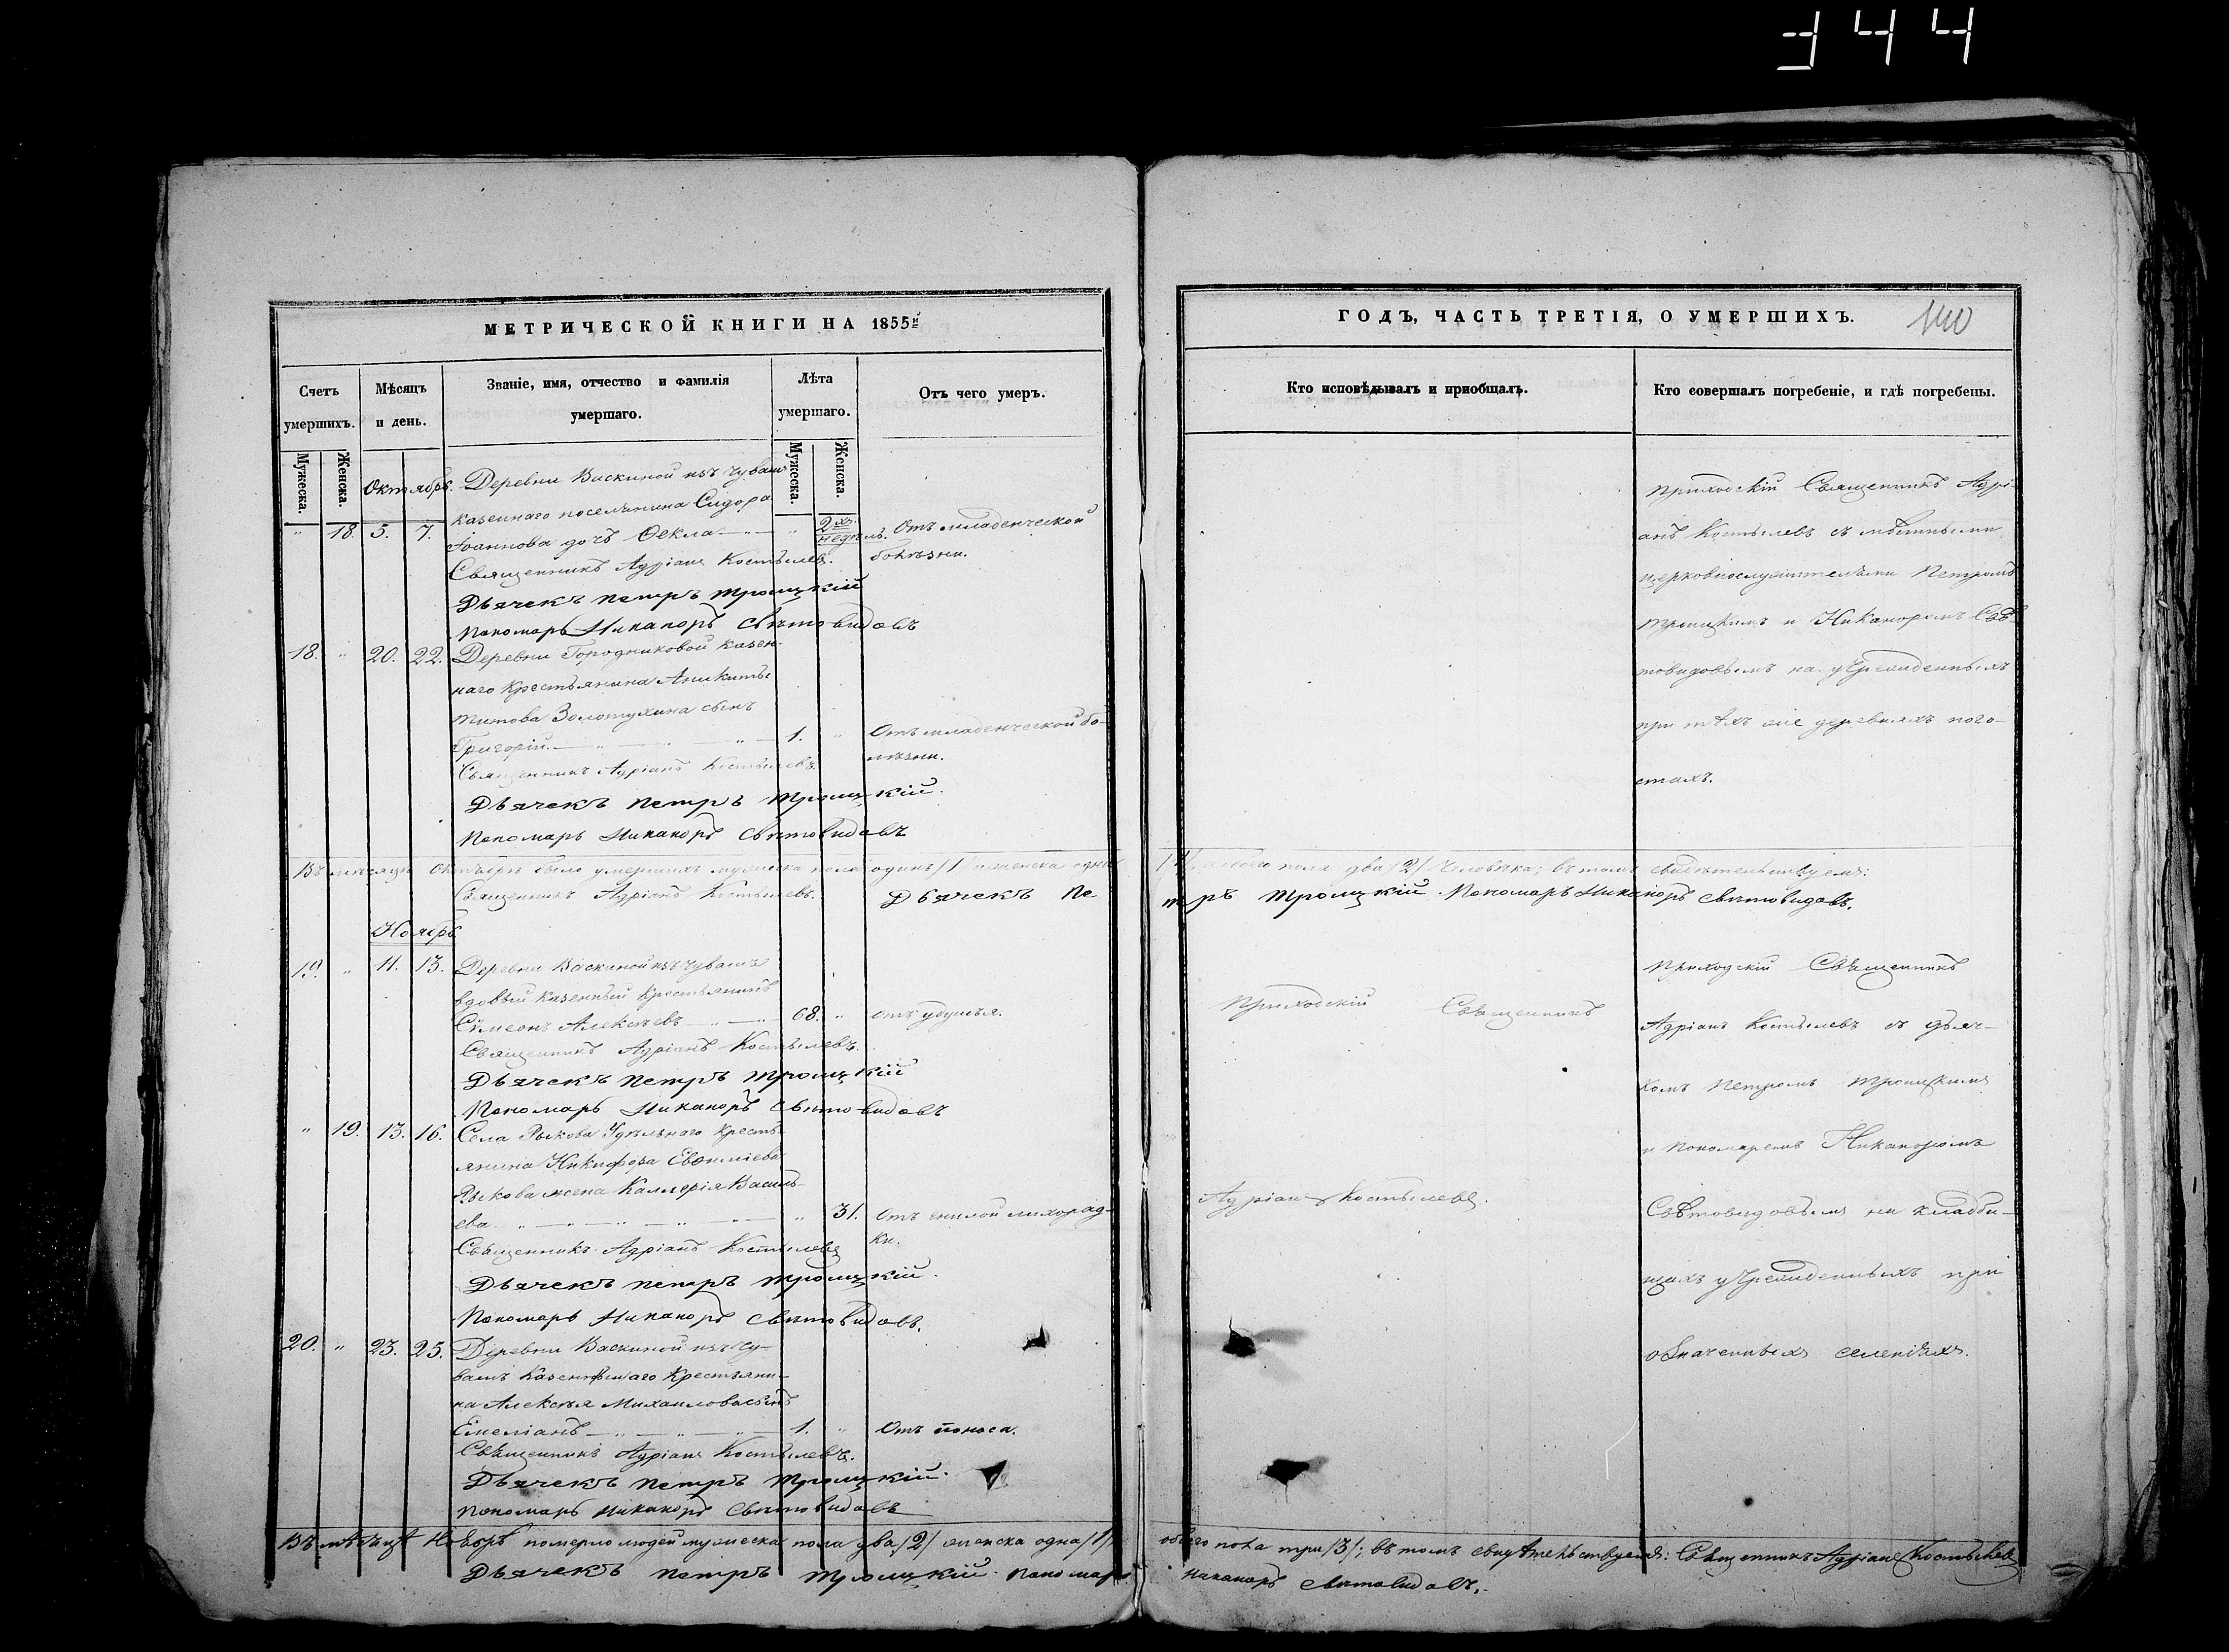 344
МЕТРИЧЕСКОЙ КНИГИ НА 1855й
Счетъ умершихъ.
Мѣсяцъ и день.
Званіе, имя, отчество и фамилія умершаго.
Лѣта умершаго.
Отъ чего умеръ.
Мужеска.
Женска.
Мужеска.
Женска.
Октябрь. Деревни Васкиной изъ Чувашъ
казеннаго поселянина Сидора
" 18. 5. 7. Іоаннова дочь Ѳекла " 2хъ недѣль. Отъ младенческой
болѣзни.
Священникъ Адріанъ Костылевъ.
Дьячекъ Петръ Троицкій
Пономарь Никаноръ Свѣтовидовъ
18. " 20. 22. Деревни Городниковой казен-
наго крестьянина Аникиты
Титова Золотухина сынъ
Григорій. 1. " Отъ младенческой бо-
лѣзни.
Священникъ Адріанъ Костылевъ.
Дьячекъ Петръ Троицкій.
Пономарь Никаноръ Свѣтовидовъ
Въ мѣсяцѣ Октябрѣ было умершихъ мужеска пола одинъ /1/ женска одна
Священникъ Адріанъ Костылевъ. Дьячекъ Пе
Ноябрь
19. " 11. 13. Деревни Васкиной изъ Чувашъ
вдовый казенный крестьянинъ
Сѵмеонъ Алексѣевъ 68. " отъ удушья.
Священникъ Адріанъ Костылевъ.
Дьячекъ Петръ Троицкій
Пономарь Никаноръ Свѣтовидовъ
" 19. 13. 16. Села Рыкова Удѣльнаго кресть-
янина Никифора Евѳиміева
Рыкова жена Каллерія Василь-
ева " 31. Отъ гнилой лихорад-
ки.
Священникъ Адріанъ Костылевъ
Дьячекъ Петръ Троицкій.
Пономарь Никаноръ Свѣтовидовъ.
20. " 23. 25. Деревни Васкиной изъ Чу-
вашъ казеннаго крестьяни-
на Алексѣя Михаилова сынъ
Емеліанъ 1. " Отъ поноса.
Священникъ Адріанъ Костылевъ.
Дьячекъ Петръ Троицкій.
Пономарь Никаноръ Свѣтовидовъ
Въ мѣсяцѣ Ноябрѣ померло людей мужеска пола два /2/ женска одна /1/
Дьячекъ Петръ Троицкій. Пономарь
ГОДЪ, ЧАСТЬ ТРЕТІЯ, О УМЕРШИХЪ.
140
Кто исповѣдывалъ и приобщалъ.
Кто совершалъ погребеніе, и гдѣ погребены.
Приходскій Священникъ Адрі-
анъ Костылевъ съ мѣстными
церковнослужителями Петромъ
Троицкимъ и Никаноромъ Свѣ-
товидовымъ на учрежденныхъ
при тѣхъ же деревняхъ пого-
стахъ.
/1/ обоего пола два /2/ человѣка; въ томъ свидѣтельствуемъ:
тръ Троицкій. Пономарь Никаноръ Свѣтовидовъ.
Приходскій Священникъ
Адріанъ Костылевъ.
Приходскій Священникъ
Адріанъ Костылевъ съ дьяч-
комъ Петромъ Троицкимъ
и Пономаремъ Никаноромъ
Свѣтовидовымъ на кладби-
щахъ учрежденныхъ при
означенныхъ селеніяхъ.
обоего пола три /3/; въ томъ свидѣтельствуемъ: Священникъ Адріанъ Костылевъ
Никаноръ Свѣтовидовъ.